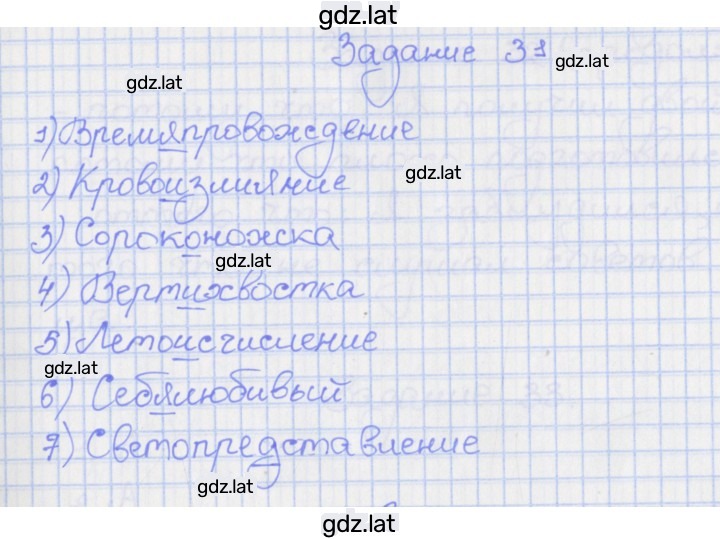 gdz.lat
Задание 31
gdz.lat
gdz.lat
1) Времяпровождение
gdz.lat
2) Кровоизлияние
3) Сороконожка
gdz.lat
4) Вертихвостка
5) Летоисчисление
gdz.lat
6) Себялюбивый
7) Светопредставление
gdz.lat
gdz.lat